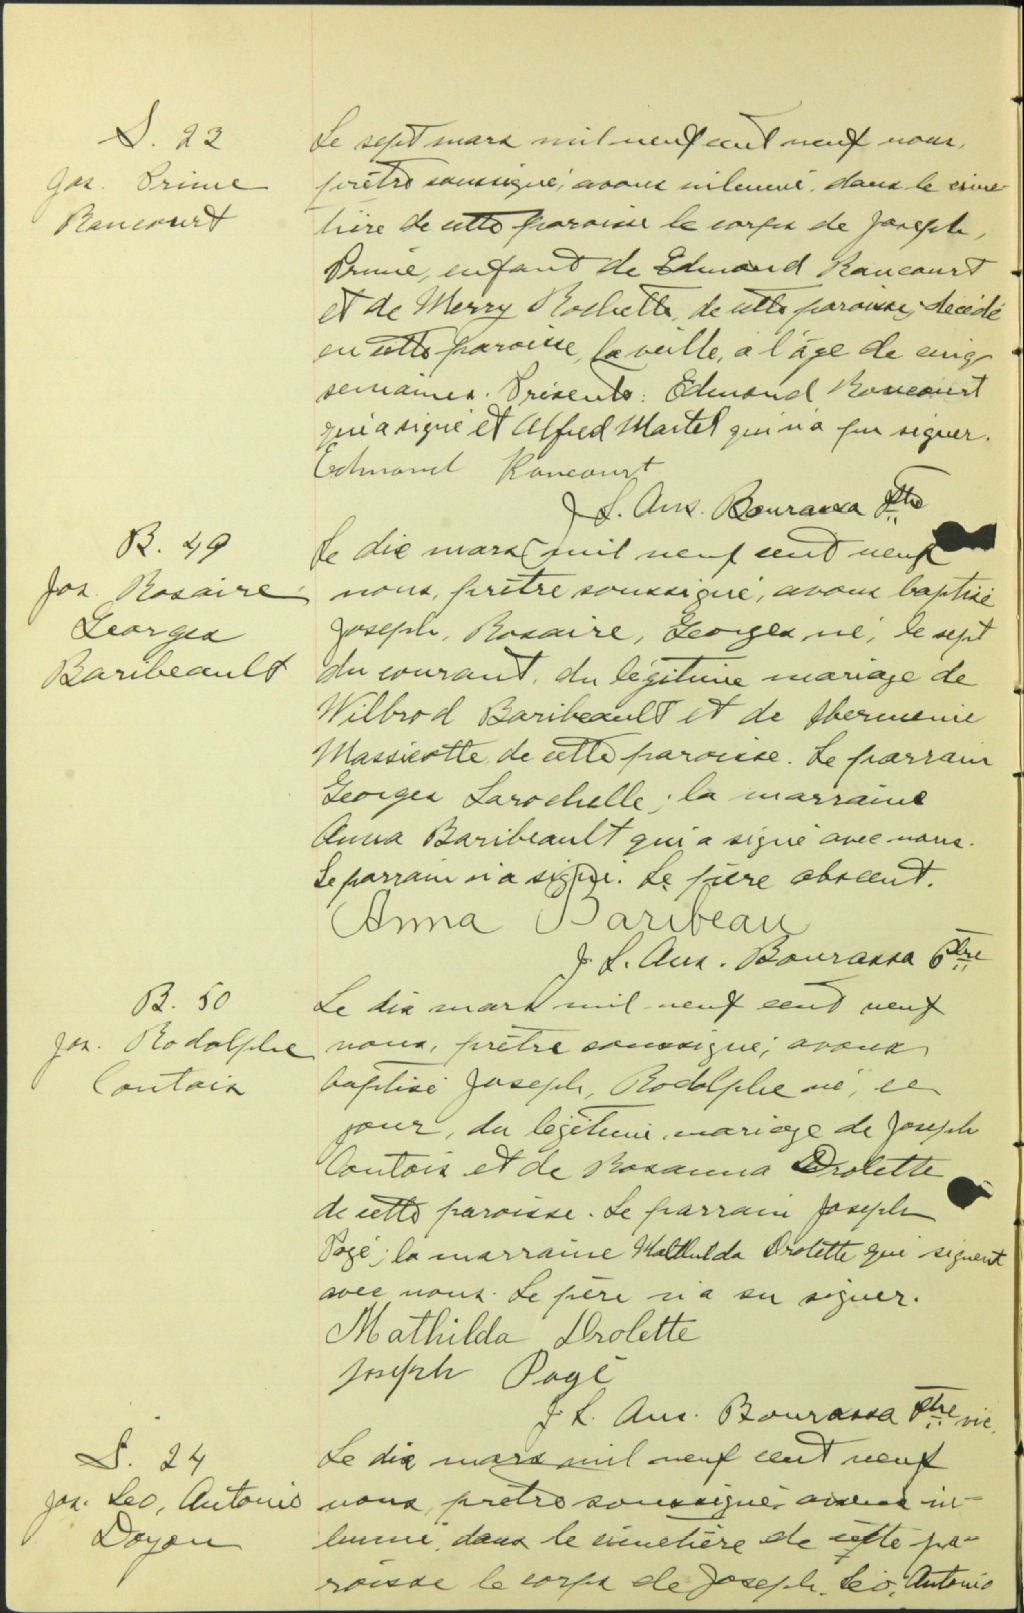 S. 23
Jos. Prime
Rancourt
Le sept mars mil neuf cent neuf nous,
prêtre soussigné, avons inhumé, dans le cime-
tière de cette paroisse le corps de Joseph,
Prime, enfant de Edmond Rancourt
et de Merry Rochette, de cette paroisse, décédé
en cette paroisse, la veille, à l'âge de cinq
semaines. Présents: Edmond Rancourt
qui a signé et Alfred Martel qui n'a pu signer.
Edmond Rancourt
J. L. Ans. Bourassa Ptre
B. 49
Jos. Rosaire
Georges
Baribeault
Le dix mars mil neuf cent neuf
nous, prêtre soussigné, avons baptisé
Joseph, Rosaire, Georges, né, le sept
du courant, du légitime mariage de
Wilbrod Baribeault et de Hermenie
Massicotte de cette paroisse. Le parrain
Georges Larochelle; la marraine
Anna Baribeault qui a signé avec nous.
Le parrain n'a signé. Le père absent.
Anna Baribeau
J. L. Ans. Bourassa Ptre
B. 50
Jos. Rodolphe
Coutois
Le dix mars mil neuf cent neuf
nous, prêtre soussigné, avons
baptisé Joseph, Rodolphe né, ce
jour, du légitime mariage de Joseph
Coutois et de Rosanna Drolette
de cette paroisse. Le parrain Joseph
Pagé; la marraine Mathilda Drolette qui signent
avec nous. Le père n'a su signer.
Mathilda Drolette
Joseph Pagé
J. L. Ans. Bourassa Ptre vic.
S. 24
Jos. Leo, Antonio
Doyon
Le dix mars mil neuf cent neuf
nous, prêtre soussigné, avons in-
humé, dans le cimetière de cette pa-
roisse le corps de Joseph, Léo, Antonio